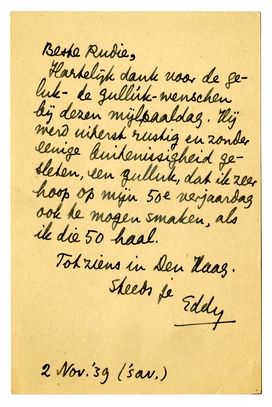 Beste Rudie,
Hartelijk dank voor de ge-
luk- de gulluk-wenschen
bij dezen mijlpaaldag. Hij
werd uiterst rustig en zonder
eenige buitenissigheid ge-
sleten, een gulluk, dat ik zeer
hoop op mijn 50e verjaardag
ook te mogen smaken, als
ik die 50 haal.
Tot ziens in Den Haag.
Steeds je
Eddy
2 Nov.'39 ('s av.)